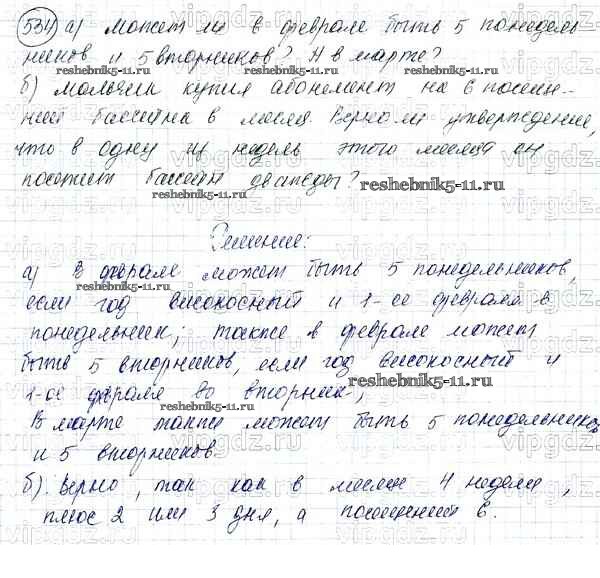 534 а) может ли в феврале быть 5 понедель-
ников и 5 вторников? А в марте?
reshebnik5-11.ru reshebnik5-11.ru
б) мальчик купил абонемент на 6 посеще-
ний бассейна в месяц. Верно ли утверждение,
что в одну из недель этого месяца он
посетит бассейн дважды?
reshebnik5-11.ru
Решение:
а) В феврале может быть 5 понедельников,
если год високосный и 1-ое февраля в
понедельник; также в феврале может
быть 5 вторников, если год високосный и
reshebnik5-11.ru
1-ое февраля во вторник;
reshebnik5-11.ru
В марте также может быть 5 понедельников
и 5 вторников.
б). Верно, так как в месяце 4 недели,
плюс 2 или 3 дня, а посещений 6.
vipgdz.ru